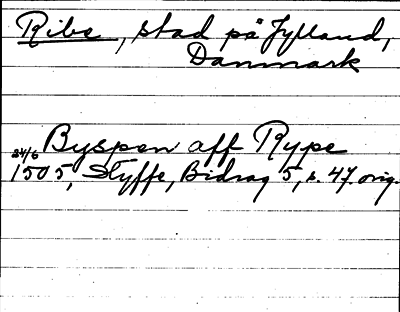 Ribe, stad på Jylland,
Danmark
Byspen aff Rype
24/6
1505, Styffe, Bidrag 5, s. 47. orig.